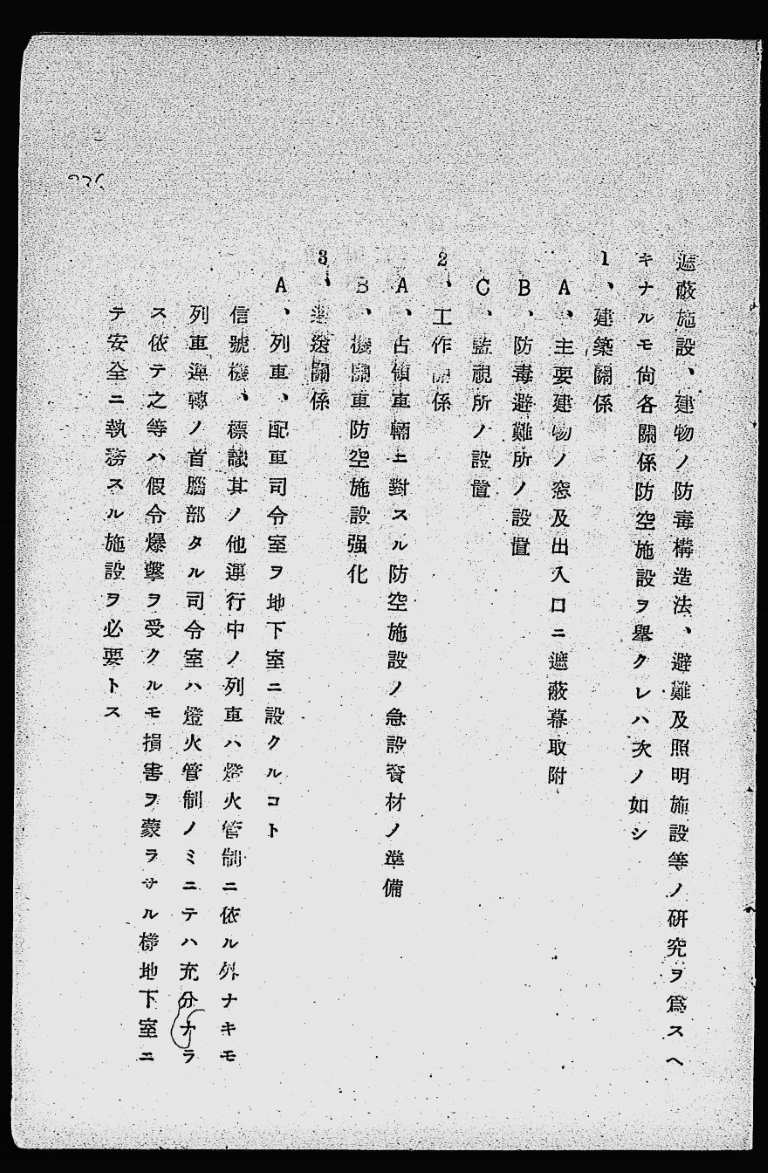 遮蔽施設、建物ノ防毒構造法、避難及照明施設等ノ研究ヲ爲スヘ
キナルモ尙各關係防空施設ヲ擧クレハ次ノ如シ
1、建築關係
A、主要建物ノ窓及出入口ニ遮蔽幕取附
B、防毒避難所ノ設置
C、監視所ノ設置
2、工作關係
A、占領車輛ニ對スル防空施設ノ急設資材ノ準備
B、機關車防空施設强化
3、運送關係
A、列車、配車司令室ヲ地下室ニ設クルコト
信號機、標識其ノ他運行中ノ列車ハ燈火管制ニ依ル外ナキモ
列車運轉ノ首腦部タル司令室ハ燈火管制ノミニテハ充分ナラ
ス依テ之等ハ假令爆擊ヲ受クルモ損害ヲ蒙ラサル樣地下室ニ
テ安全ニ執務スル施設ヲ必要トス